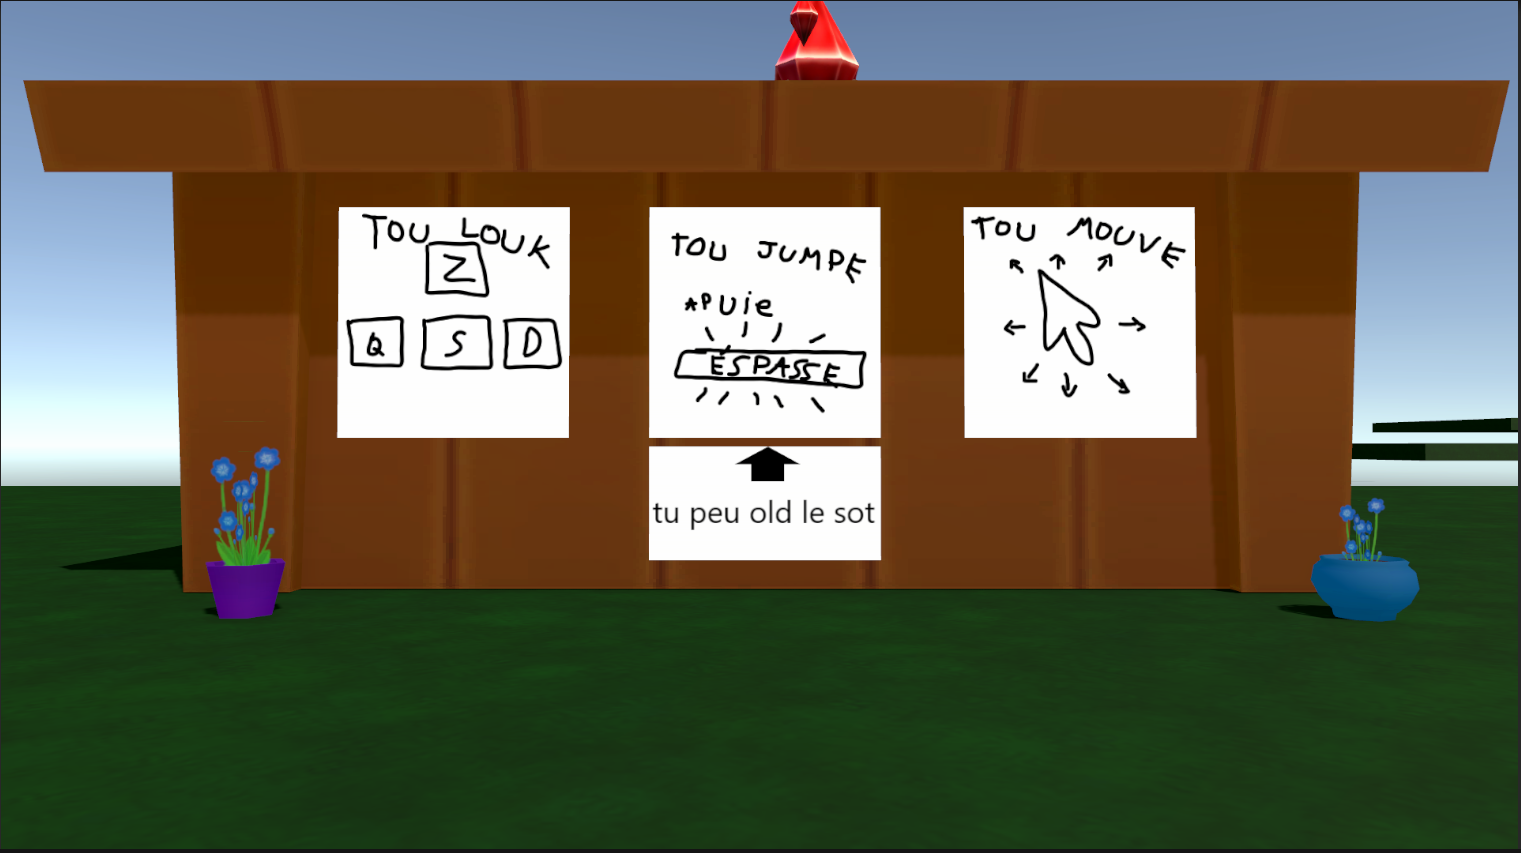 TOU LOUK
Z
Q S D
TOU JUMPE
APUie
ESPASSE
tu peu old le sot
TOU MOUVE